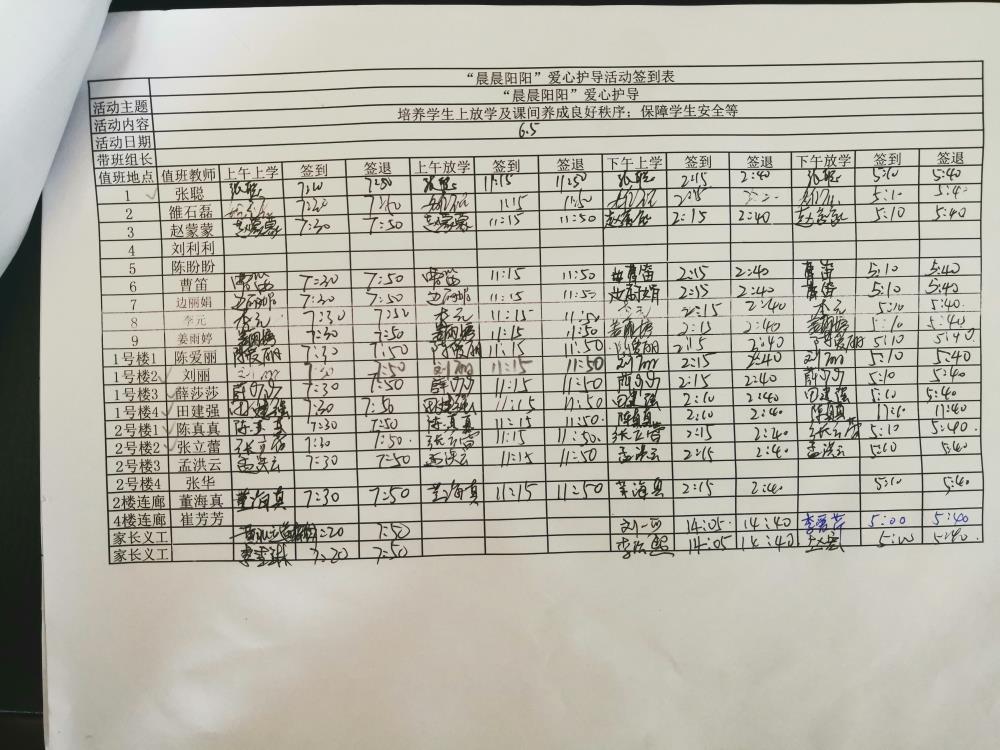 “晨晨阳阳”爱心护导活动签到表
活动主题 “晨晨阳阳”爱心护导
活动内容 培养学生上放学及课间养成良好秩序；保障学生安全等
活动日期 6.5
带班组长
值班地点 值班教师 上午上学 签到 签退 上午放学 签到 签退 下午上学 签到 签退 下午放学 签到 签退
1 张聪 张聪 7:20 7:50 张聪 11:15 11:50 张聪 2:15 2:40 张聪 5:10 5:40
2 雒石磊 7:20 11:15 11:50 2:15 5:10
3 赵蒙蒙 赵蒙蒙 7:30 7:50 赵蒙蒙 11:15 11:50 赵蒙蒙 2:15 2:40 赵蒙蒙 5:10 5:40
4 刘利利
5 陈盼盼
6 曹笛 曹笛 7:30 7:50 曹笛 11:15 11:50 曹笛 2:15 2:40 曹笛 5:10 5:40
7 边丽娟 边丽娟 7:30 7:50 边丽娟 11:15 11:50 2:15 2:40 5:10 5:40
8 李元 李元 7:30 7:50 李元 11:15 11:50 李元 2:15 2:40 李元 5:10 5:40
9 姜雨婷 姜雨婷 7:30 7:50 姜雨婷 11:15 11:50 姜雨婷 2:15 2:40 姜雨婷 5:10 5:40
1号楼1 陈爱丽 陈爱丽 7:30 7:50 陈爱丽 11:15 11:50 陈爱丽 2:15 2:40 陈爱丽 5:10 5:40
1号楼2 刘丽 刘丽 7:50 刘丽 11:15 11:50 刘丽 2:15 2:40 刘丽 5:10 5:40
1号楼3 薛莎莎 薛莎莎 7:30 7:50 薛莎莎 11:15 11:50 薛莎莎 2:15 2:40 薛莎莎 5:10 5:40
1号楼4 田建强 田建强 7:30 7:50 田建强 11:15 11:50 田建强 2:10 2:40 田建强 5:10 5:40
2号楼1 陈真真 陈真真 7:30 7:50 陈真真 11:15 11:50 陈真真 2:10 2:40 陈真真 11:10 11:40
2号楼2 张立蕾 张立蕾 7:30 7:50 张立蕾 11:15 11:50 张立蕾 2:15 2:40 张立蕾 5:10 5:40
2号楼3 孟洪云 孟洪云 7:30 7:50 孟洪云 11:15 11:50 孟洪云 2:15 2:40 孟洪云 5:10 5:40
2号楼4 张华 5:10 5:40
2楼连廊 董海真 董海真 7:30 7:50 董海真 11:15 11:50 董海真 2:15 2:40
4楼连廊 崔芳芳
家长义工 7:20 7:50 刘一 14:05 14:40 5:00 5:40
家长义工 7:20 7:50 14:05 14:40 5:00 5:40